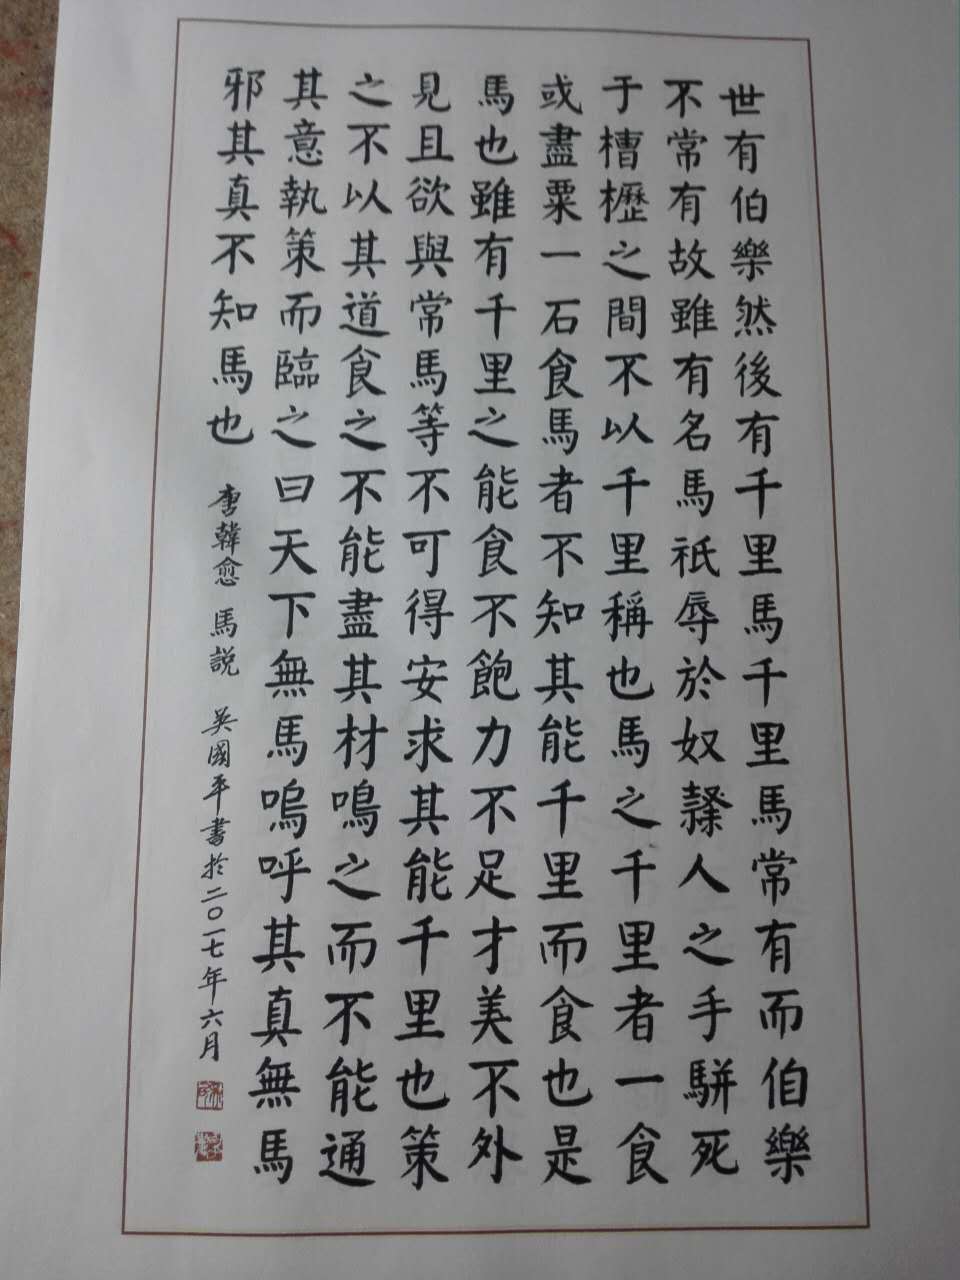 世有伯樂然後有千里馬千里馬常有而伯樂
不常有故雖有名馬祇辱於奴隸人之手駢死
于槽櫪之間不以千里稱也馬之千里者一食
或盡粟一石食馬者不知其能千里而食也是
馬也雖有千里之能食不飽力不足才美不外
見且欲與常馬等不可得安求其能千里也策
之不以其道食之不能盡其材鳴之而不能通
其意執策而臨之曰天下無馬嗚呼其真無馬
邪其真不知馬也
唐韓愈 馬説 吴國平書於二〇一七年六月